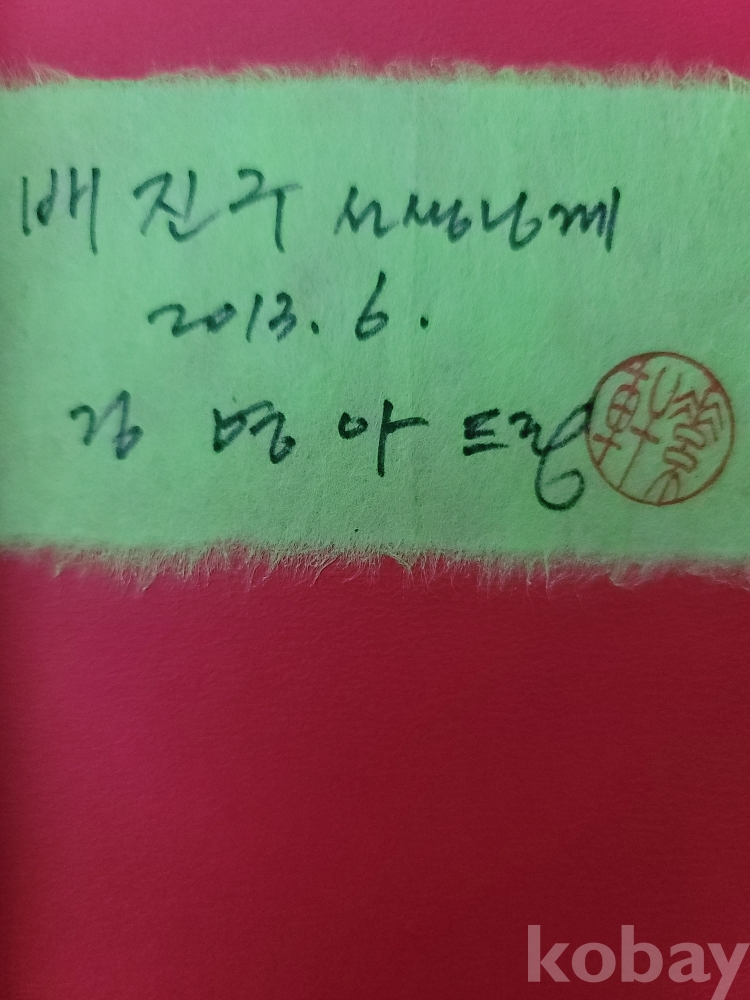 배 진구 선생님께
2013. 6.
김 명아 드림
kobay